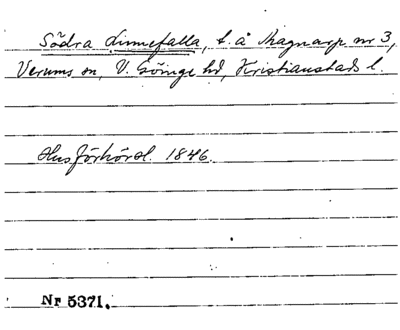 Södra Linnefalla, t. å Magnarp nr 3,
Verums sn, V. Göinge hd, Kristianstads l.
Husförhörsl. 1846.
Nr 5371.